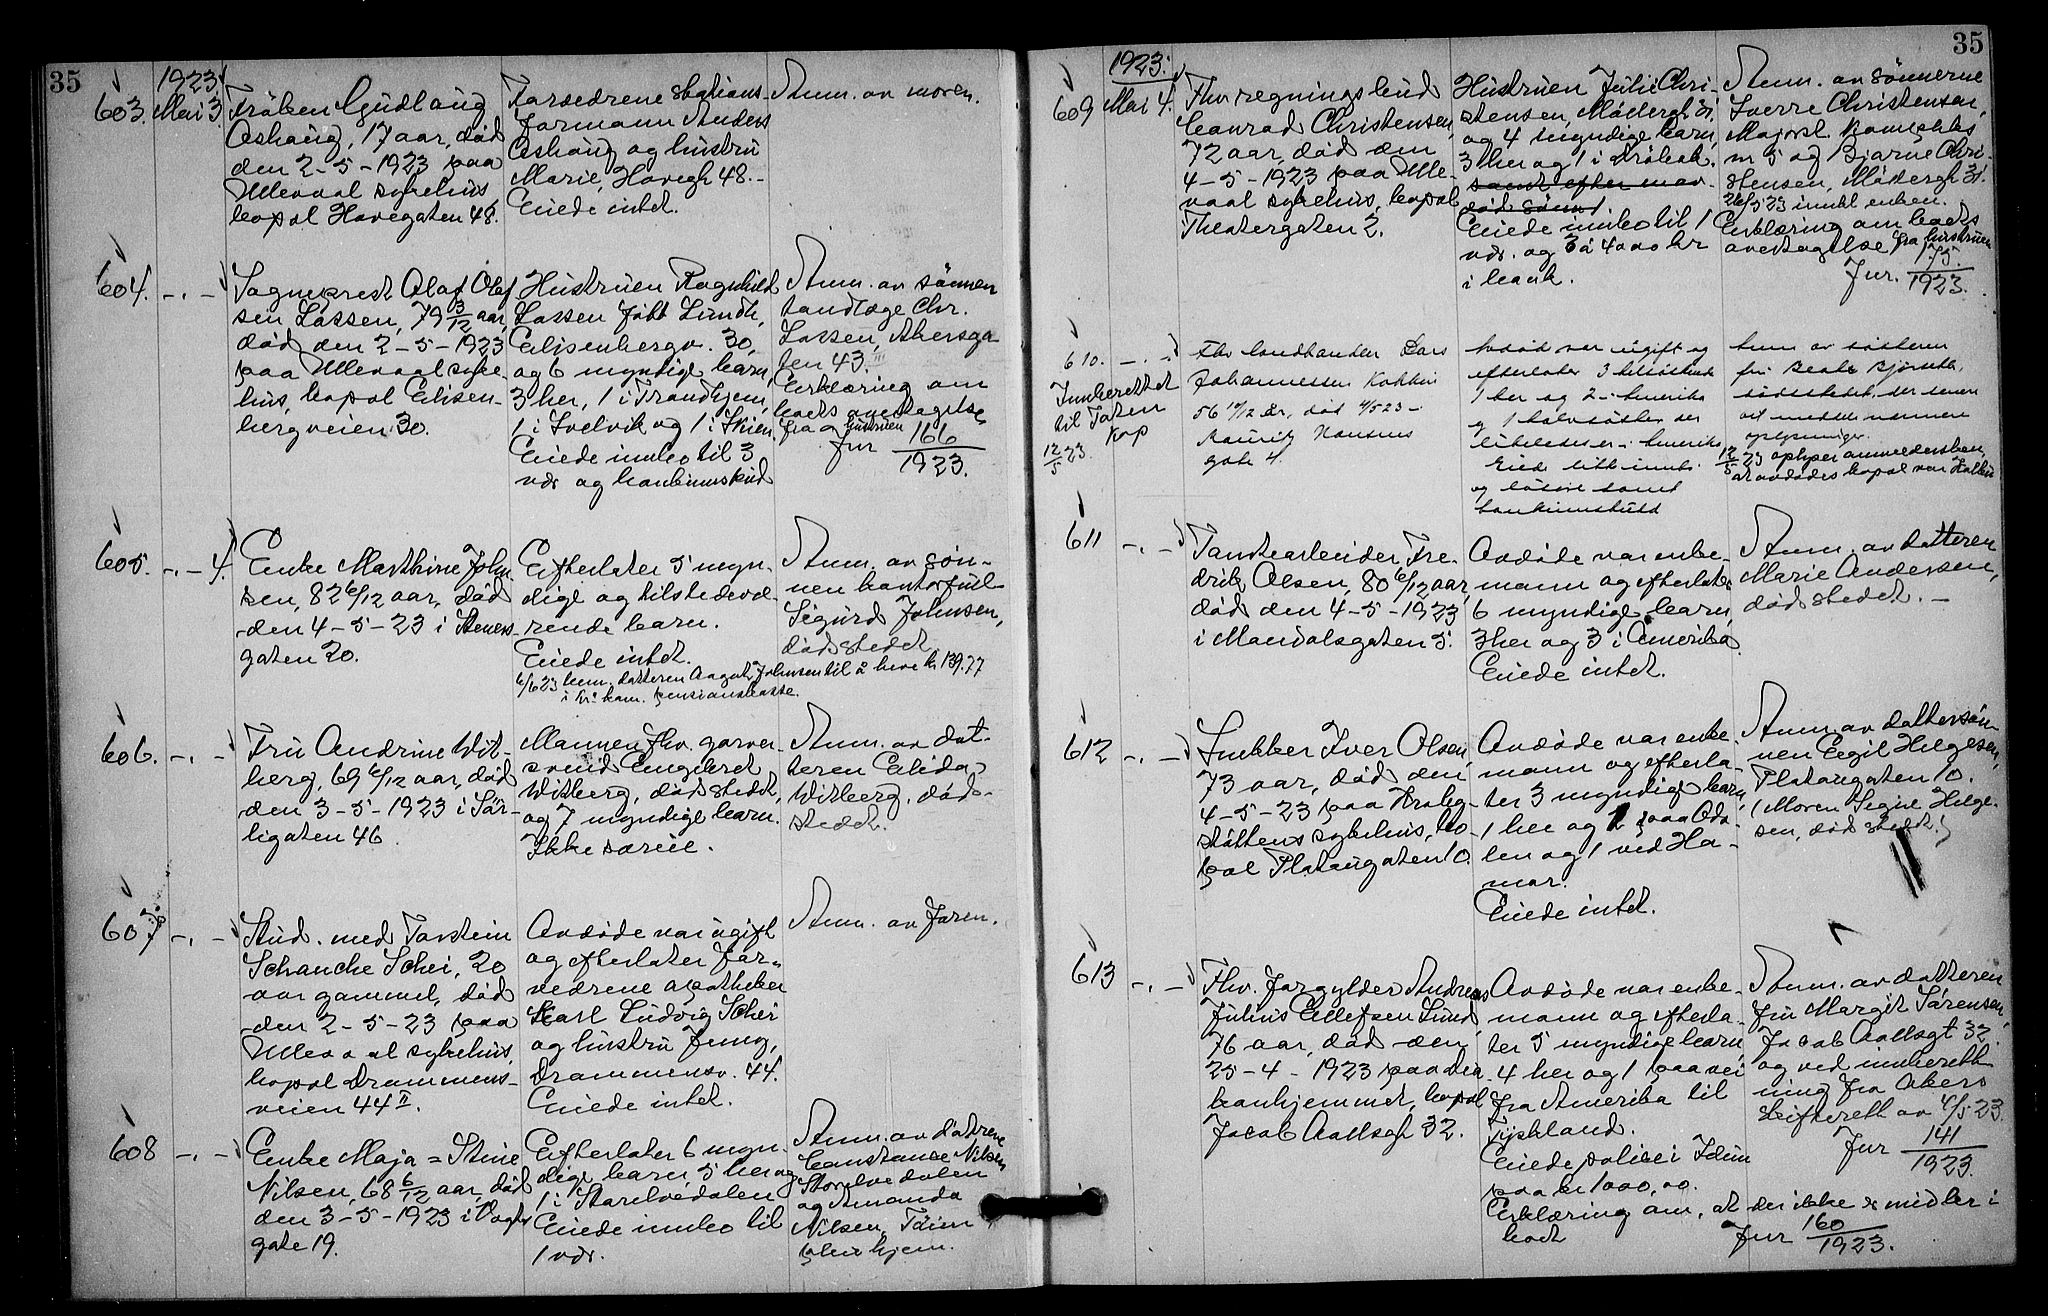 35
1923
603. Mai 3.
Frøken Gudlaug
Åshaug, 17 aar, død
den 2-5-1923 paa
Ullevaal sykehus
bopæl Havegaten 48.
Forældrene stations-
formann Anders
Åshaug og hustru
Marie, Havegt 48.-
Eiede intet.
Anm. av moren.
604. -.-
Sogneprest Olaf Olaf
sen Lassen, 79 3/12 aar,
død den 2-5-1923
paa Ullevaal syke-
hus, bopæl Elisen-
bergveien 30.
Hustruen Ragnhild
Lassen født Lundh,
Elisenbergv. 30,
og 6 myndige barn,
3 her, 1 i Trondhjem,
1 i Svelvik og 1 i Skien.
Eiede innbo til 3
vær og bankinnskud
Anm. av sønnen
tandlæge Chr.
Lassen, Akersga
ten 43. III
Erklæring om
boets overtagelse
fra hustruen
Jur 166/1923.
605. -.- 4.
Enke Marthine John
sen, 82 6/12 aar, død
den 4-5-23 i Steners
gaten 20.
Efterlater 5 myn-
dige og tilstedevæ-
rende barn.
Eiede intet.
6/6 23 bem. datteren Aagot Johnsen til å heve kr 139.77
i Kr.a kom. pensionskasse.
Anm. av søn-
nen kontorful-
Sigurd Johnsen,
dødsstedet
606. -.-
Fru Andrine Wit-
berg, 69 6/12 aar, død
den 3-5-1923 i Sør-
ligaten 46.
Mannen fhv. garver
svend Engebret
Witberg, dødsstedet,
og 7 myndige barn.
Ikke særeie.
Anm. av dat-
teren Elida
Witberg, døds-
stedet.
607 -.-
Stud. med Torstein
Schanche Schei, 20
aar gammel, død
den 2-5-23 paa
Ullevaal sykehus,
bopæl Drammens-
veien 44 II.
Avdøde var ugift
og efterlater for-
ældrene apotheker
Karl Ludvig Schei
og hustru Jenny,
Drammensv. 44.
Eiede intet.
Anm. av faren.
608 -.-
Enke Maja = Stine
Nilsen, 68 6/12 aar, død
den 3-5-1923 i Vogts
gate 19.
Efterlater 6 myn-
dige barn, 5 her og
1 i Storelvedalen
Eiede innbo til
1 vær.
Anm. av døtrene
Constance Nilsen
Storelvedalen
og Amanda
Nilsen, Tøien
pleiehjem.
35
1923.
609 Mai 4.
Fhv regningsbud
Conrad Christensen,
72 aar, død den
4-5-1923 paa Ulle-
vaal sykehus, bopæl
Theatergaten 2.
Hustruen Julie Chri-
stensen, Møllergt 31.
og 4 myndige barn,
3 her og 1 i Drøbak.
samt efter en av-
død sønn 1.
Eiede innbo til 1
vær. og 3 à 4000 kr
i bank.
Anm. av sønnerne
Sverre Christensen,
Majorst.
nr 5 og Bjarne Chri-
stensen, Møllergt 31.
26/5 23 innkl enken.
Erklæring om boets
overtagelse fra hustruen
Jur. 175/1923.
610. -.-
Innberettet
til Toten
kop
12/5 23.
Fhv landhandler Lars
Johannessen Kolbu
56 10/12 år, død 4/5 23-
Mauritz Hansens
gate 4.
Avdød var ugift og
efterlater 3 helsøstre
1 her og 2 i Amerika
og 1 halvsøster der
likeledes er i Amerika
Eied litt innbo
og løsøre samt
bankinnskudd
Anm av søsteren
fru Beate Bjørnth,
dødsstedet, der senere
vil meddele nærmere
oplysninger.
12/5 23 oplyser anmeldersken,
at avdødes bopæl var Kolbu
611 -.-
Tomtearbeider Fre-
drik Olsen, 80 6/12 aar,
død den 4-5-1923
i Mandalsgaten 5.
Avdøde var enke-
mann og efterlater
6 myndige barn,
3 her og 3 i Amerika
Eiede intet.
Anm. av datteren
Marie Andersen,
dødsstedet.-
612 -.-
Snekker Iver Olsen,
73 aar, død den
4-5-23 paa Krohg-
støttens sykehus, bo-
pæl Plataugaten 10.
Avdøde var enke-
mann og efterla-
ter 3 myndige barn,
1 her og 1 paa Oda-
len og 1 ved Ha-
mar.
Eiede intet.
Anm. av dattersøn-
nen Egil Helgesen,
Plataugaten 10.
(Moren Signe Helge-
sen, dødsstedet.)
613 -.-
Fhv. forgylder Andreas
Julius Ellefsen Lund
76 aar, død den
25-4-1923 paa Dia
konhjemmet, bopæl
Jacob Aallsgt 32.
Avdøde var enke-
mann og efterla-
ter 5 myndige barn,
4 her og 1 paa vei
fra Amerika til
Tyskland.
Eiede police i Idun
paa kr 1000,00.
Erklæring om, at der ikke er midler i
boet
Jur 160/1923.
Anm. av datteren
fru Margit Sørensen,
Jacob Aallsgt 32.
og ved innberett-
ning fra Akers
skifterett av 4/5 23.
Jur 141/1923.